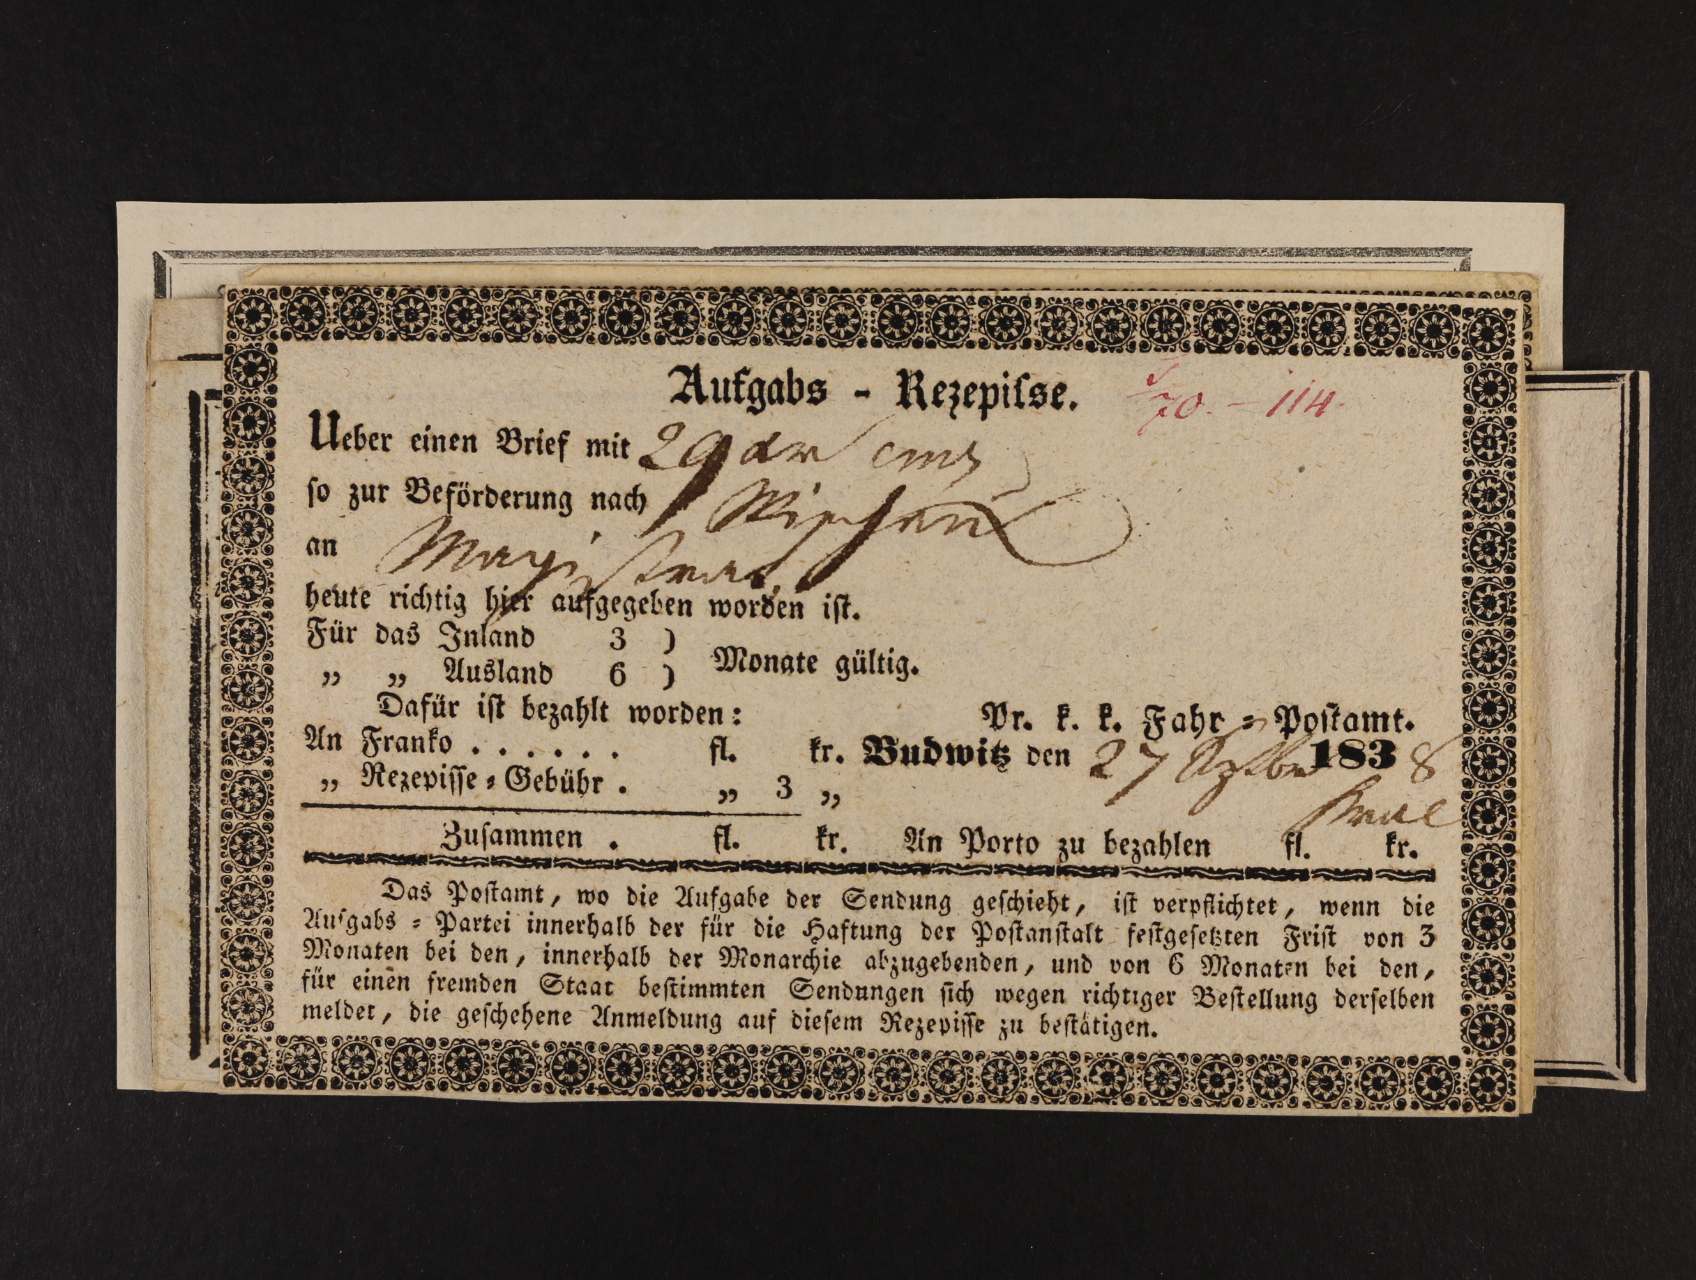 Aufgabs - Rezepisse. 70. - 114.
Ueber einen Brief mit 29
so zur Beförderung nach
an Magistrat
heute richtig hier aufgegeben worden ist.
Für das Inland 3 )
„ „ Ausland 6 ) Monate gültig.
Dafür ist bezahlt worden:
Pr. k. k. Fahr-Postamt.
An Franko . . . . . . fl. kr. Budwitz den 27 1838
„ Rezepisse-Gebühr . „ 3 „
Zusammen . fl. kr. An Porto zu bezahlen fl. kr.
Das Postamt, wo die Aufgabe der Sendung geschieht, ist verpflichtet, wenn die
Aufgabs-Partei innerhalb der für die Haftung der Postanstalt festgesetzten Frist von 3
Monaten bei den, innerhalb der Monarchie abzugebenden, und von 6 Monaten bei den,
für einen fremden Staat bestimmten Sendungen sich wegen richtiger Bestellung derselben
meldet, die geschehene Anmeldung auf diesem Rezepisse zu bestätigen.